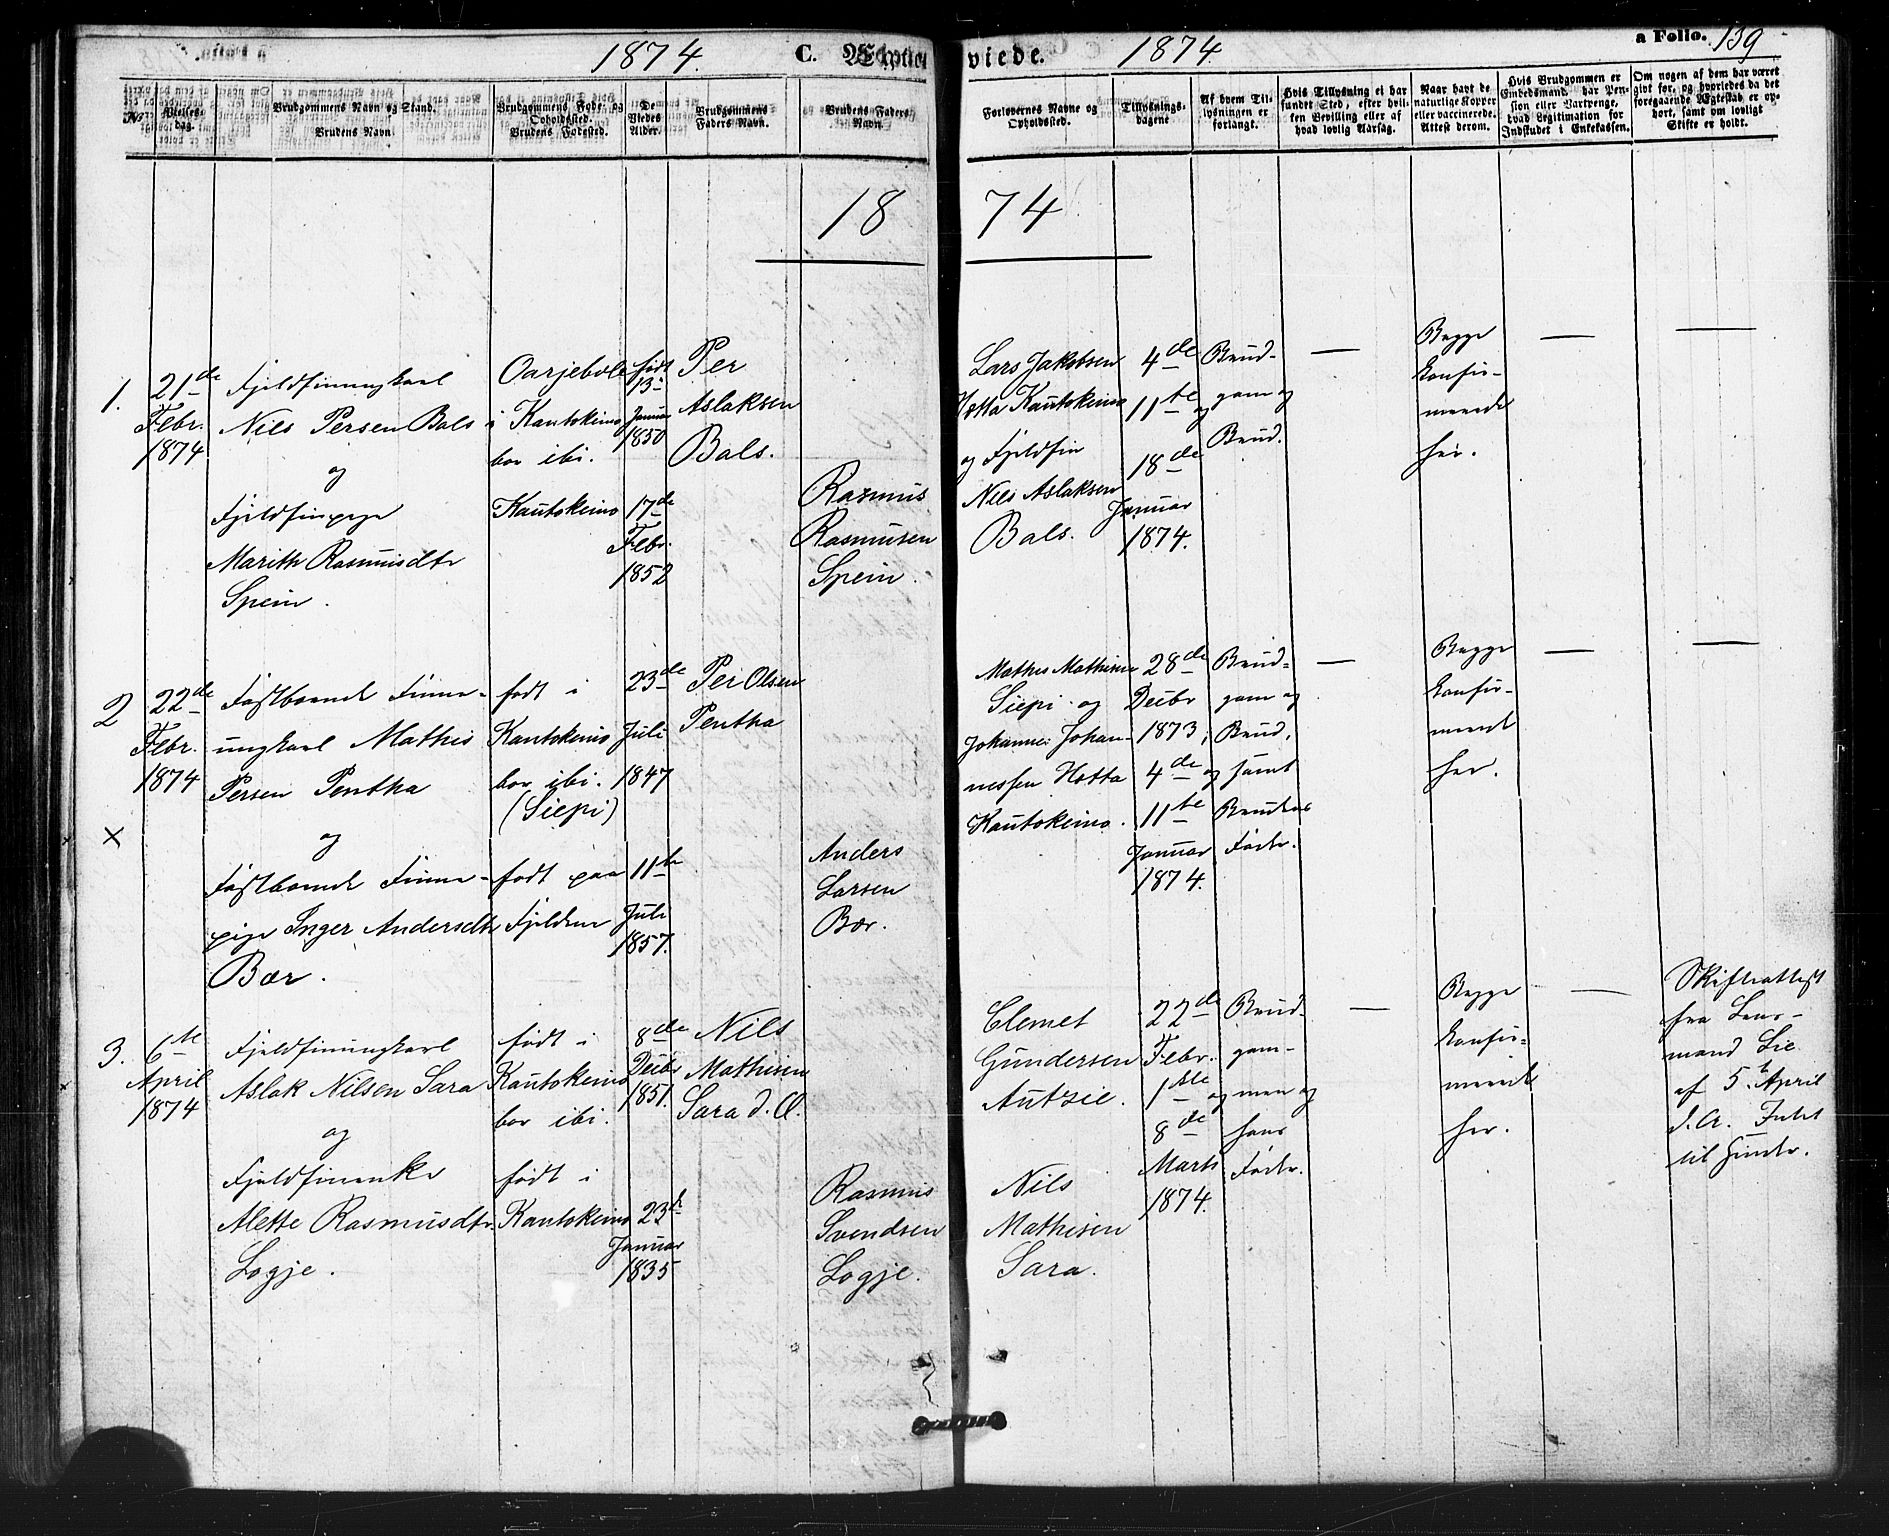 1874. C. Ægtevviede. 1874. a Folio. 139
No
Vielsesdag.
Brudgommens Navn og Stand.
Brudens Navn.
Brudgommens Føde- og
Opholdssted.
Brudens Fødested.
De
Viedes
Alder.
Brudgommens
Faders Navn.
Brudens Faders
Navn.
Forlovernes Navne og
Opholdssted.
Tillysnings-
dagene
Af hvem Til-
lysningen er
forlangt.
Hvis Tillysning ei har
fundet Sted, efter hvil-
ken Bevilling eller af
hvad lovlig Aarsag.
Naar havt de
naturlige Kopper
eller vaccinerede.
Attest derom.
Hvis Brudgommen er
Embedsmand har Pen-
sion eller Vartpenge,
hvad Legitimation for
Indskudet i Enkekassen.
Om nogen af dem har været
gift før, og hvorledes da det
foregaaende Ægteskab er op-
hørt, samt om lovligt
Skifte er holdt.
18 74
1.
21de
Febr.
1874
Fjeldfinungkarl
Nils Persen Bals
og
Fjeldfinpige
Marith Rasmusdtr
Spein.
Oarjebole
i Kautokeino
bor ibi.
Kautokeino
født
13de
Januar
1850
17de
Febr.
1852
Per
Aslaksen
Bals.
Rasmus
Rasmusen
Spein.
Lars Jakobsen
Hotta Kautokeino
og Fjeldfin
Nils Aslaksen
Bals.
4de
11te og
18de
Januar
1874.
Brud-
gom og
Brud.
—
Begge
konfir-
merede
her.
—
—
2
22de
Febr.
1874
×
Fastboende Finne-
ungkarl Mathis
Persen Pentha
og
Fastboende Finne-
pige Inger Andersdtr
Bær.
født i
Kautokeino
bor ibi.
(Siepi)
født paa
Fjeldene
23de
Juli
1847
11te
Juli
1857.
Per Olsen
Pentha
Anders
Larsen
Bær.
Mathis Mathisen
Siepi og
Johannes Johan-
nessen Hotta
Kautokeino.
28de
Decbr
1873,
4de og
11te
Januar
1874.
Brud-
gom og
Brud,
samt
Brudens
Fader.
—
Begge
konfir-
merede
her.
—
—
3.
6te
April
1874
Fjeldfinungkarl
Aslak Nilsen Sara
og
Fjeldfinenke
Alette Rasmusdtr.
Logje.
født i
Kautokeino
bor ibi.
født i
Kautokeino
8de
Decbr
1851.
23de
Januar
1835
Nils
Mathisen
Sara d. Æ.
Rasmus
Svendsen
Logje.
Clemet
Gundersen
Autzie.
Nils
Mathisen
Sara.
22de
Febr.
1ste og
8de
Marts
1874.
Brud-
gom-
men og
hans
Fader.
—
Begge
konfir-
merede
her.
—
Skifteattest
fra Lens-
mand Lie
af 5te April
d. A. Intet
til Hinder.